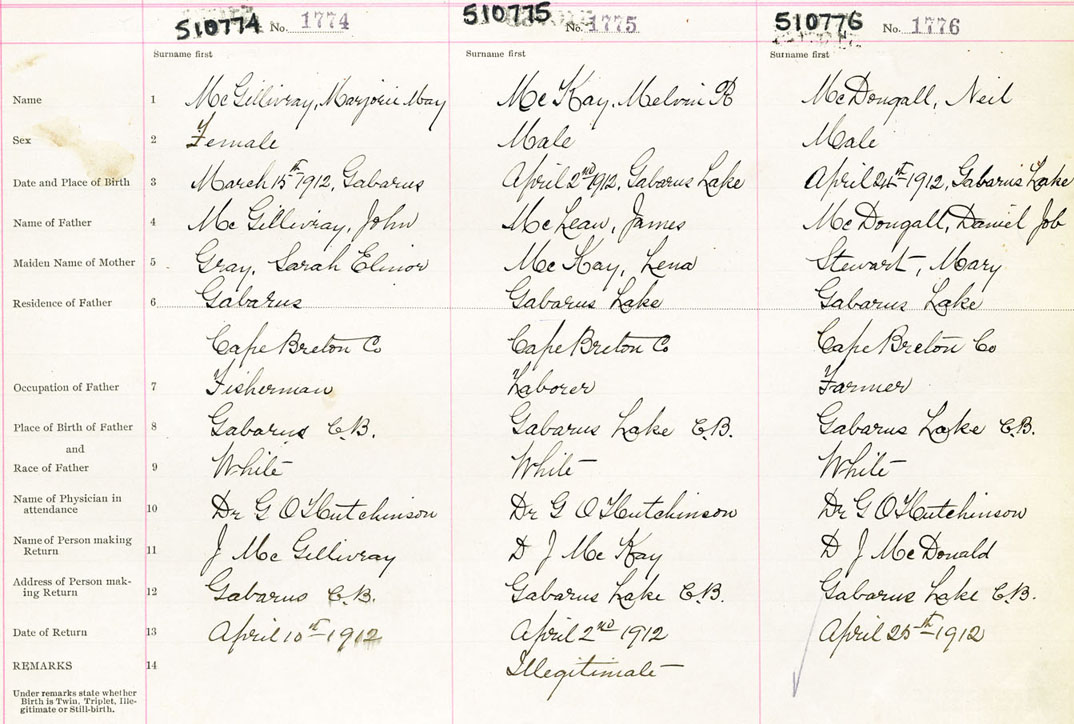 510774 No. 1774 510775 No. 1775 510776 No. 1776
Surname first Surname first Surname first
Name 1 Mc Gillivray, Marjorie May Mc Kay, Melvin R McDougall, Neil
Sex 2 Female Male Male
Date and Place of Birth 3 March 15th 1912, Gabarus April 2nd 1912, Gabarus Lake April 24th 1912, Gabarus Lake
Name of Father 4 Mc Gillivray, John McLean, James McDougall, Daniel Job
Maiden Name of Mother 5 Gray, Sarah Elinor Mc Kay, Lena Stewart, Mary
Residence of Father 6 Gabarus Gabarus Lake Gabarus Lake
Cape Breton Co Cape Breton Co Cape Breton Co
Occupation of Father 7 Fisherman Laborer Farmer
Place of Birth of Father 8 Gabarus C.B. Gabarus Lake C.B. Gabarus Lake C.B.
and
Race of Father 9 White White White
Name of Physician in
attendance 10 Dr G O Hutchinson Dr G O Hutchinson Dr G O Hutchinson
Name of Person making
Return 11 J Mc Gillivray D J Mc Kay D J McDonald
Address of Person mak-
ing Return 12 Gabarus C.B. Gabarus Lake C.B. Gabarus Lake C.B.
Date of Return 13 April 10th 1912 April 2nd 1912 April 25th 1912
REMARKS 14 Illegitimate
Under remarks state whether
Birth is Twin, Triplet, Ille-
gitimate or Still-birth.